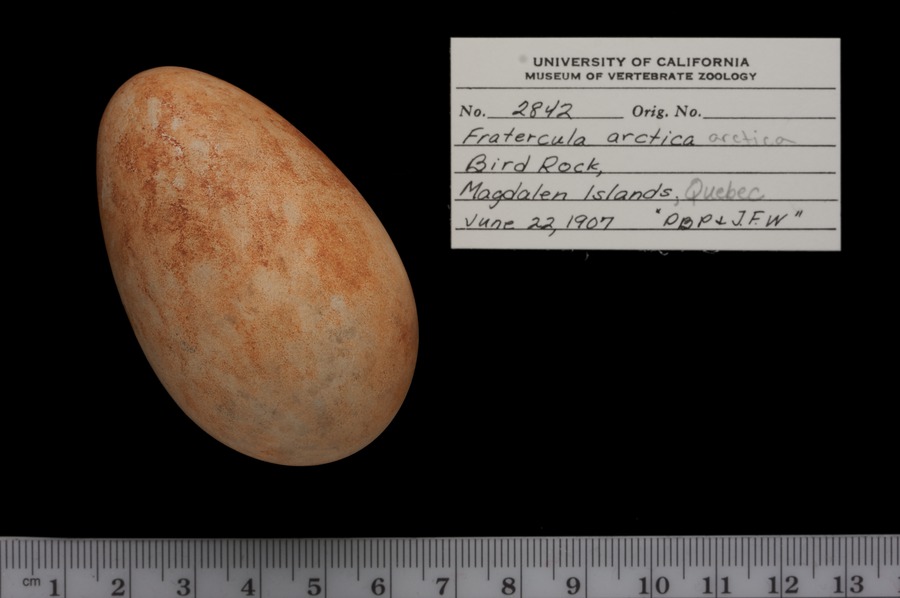 UNIVERSITY OF CALIFORNIA
MUSEUM OF VERTEBRATE ZOOLOGY
No. 2842 Orig. No.
Fratercula arctica arctica
Bird Rock,
Magdalen Islands, Quebec
June 22, 1907 "PBP & J.F.W"
cm 1 2 3 4 5 6 7 8 9 10 11 12 13